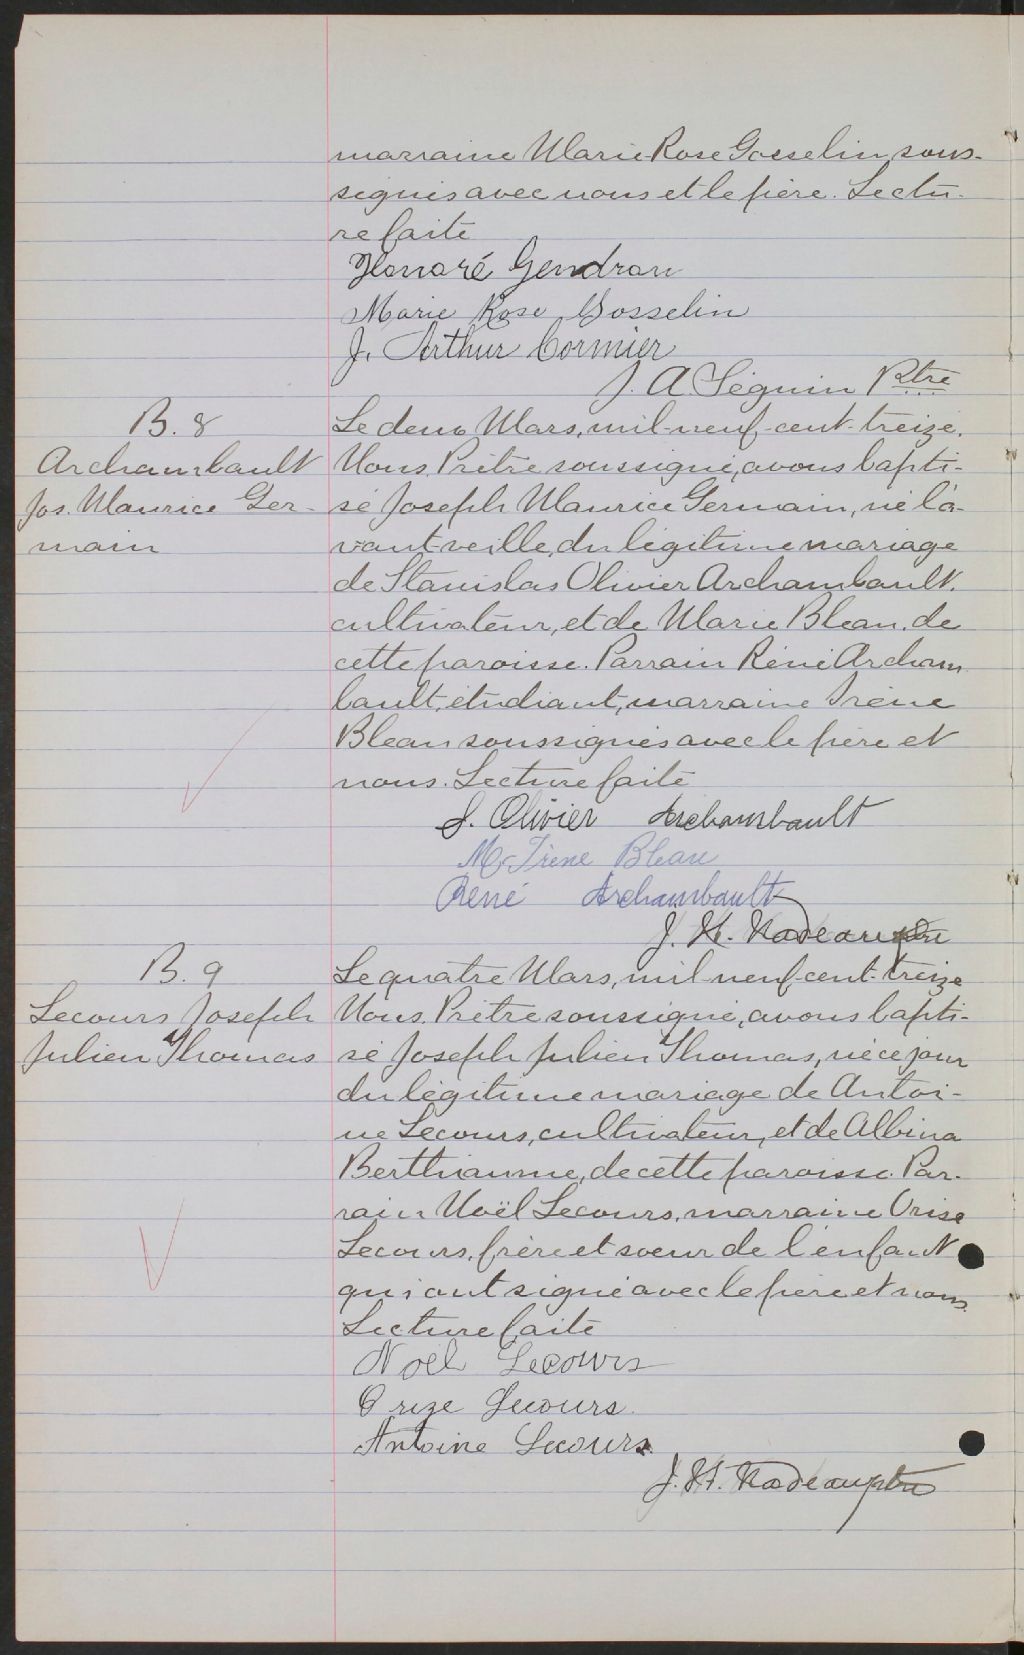 marraine Marie-Rose Gosselin, sous-
signés avec nous et le père. Lectu-
re faite
Honoré Gendron
Marie Rose Gosselin
J. Arthur Cormier
J. A. Séguin Ptre
B. 8
Archambault
Jos. Maurice Ger-
main
Le deux Mars, mil-neuf-cent-treize,
Nous, Prêtre soussigné, avons bapti-
sé Joseph Maurice Germain, né l'a-
vant veille, du légitime mariage
de Stanislas Olivier Archambault,
cultivateur, et de Marie Bleau, de
cette paroisse. Parrain Réné Archam
bault, étudiant, marraine Irène
Bleau soussignés avec le père et
nous. Lecture faite
S. Olivier Archambault
M-Irène Bleau
René Archambault
J. H. Nadeau ptre
B. 9
Lecours Joseph
Julien Thomas
Le quatre Mars, mil-neuf-cent-treize
Nous, Prêtre soussigné, avons bapti-
sé Joseph Julien Thomas, né ce jour
du légitime mariage de Antoi-
ne Lecours, cultivateur, et de Albina
Berthiaume, de cette paroisse. Par-
rain Noël Lecours, marraine Orise
Lecours, frère et soeur de l'enfant
qui ont signé avec le père et nous.
Lecture faite
Noël Lecours
Orize Lecours
Antoine Lecours
J. H. Nadeau ptre